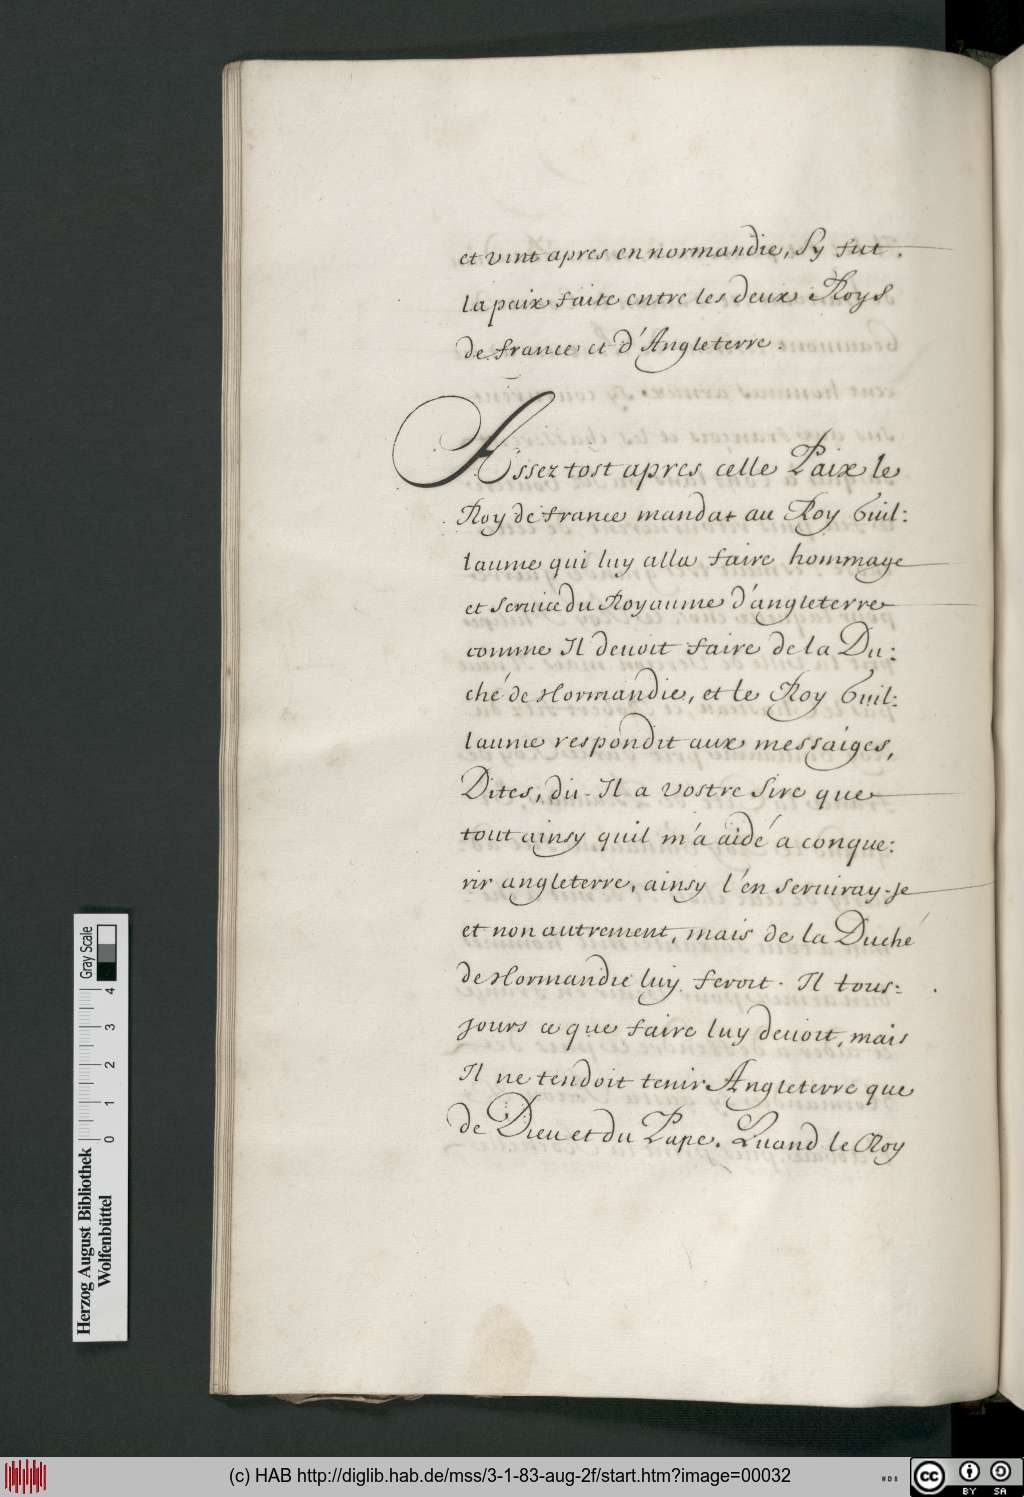 et vint apres en normandie, Sy fut
la paix faite entre les deux Roys
de france et d'Angleterre.
Assez tost apres celle Paix le
Roy de france mandat au Roy Guil:
laume qui luy alla faire hommage
et seruice du Royaume d'angleterre
comme Il deuoit faire de la Du:
ché de Normandie, et le Roy Guil:
laume respondit aux messaiges,
Dites, di-Il a vostre Sire que
tout ainsy quil m'a aidé a conque:
rir angleterre, ainsy l'en seruiray-je
et non autrement, mais de la Duché
de Normandie luy feroit-Il tous:
jours ce que faire luy deuoit, mais
Il ne tendoit tenir Angleterre que
de Dieu et du Pape. Quand le Roy
Herzog August Bibliothek
Wolfenbüttel
0 1 2 3 4
Gray Scale
(c) HAB http://diglib.hab.de/mss/3-1-83-aug-2f/start.htm?image=00032
WDB
cc BY SA